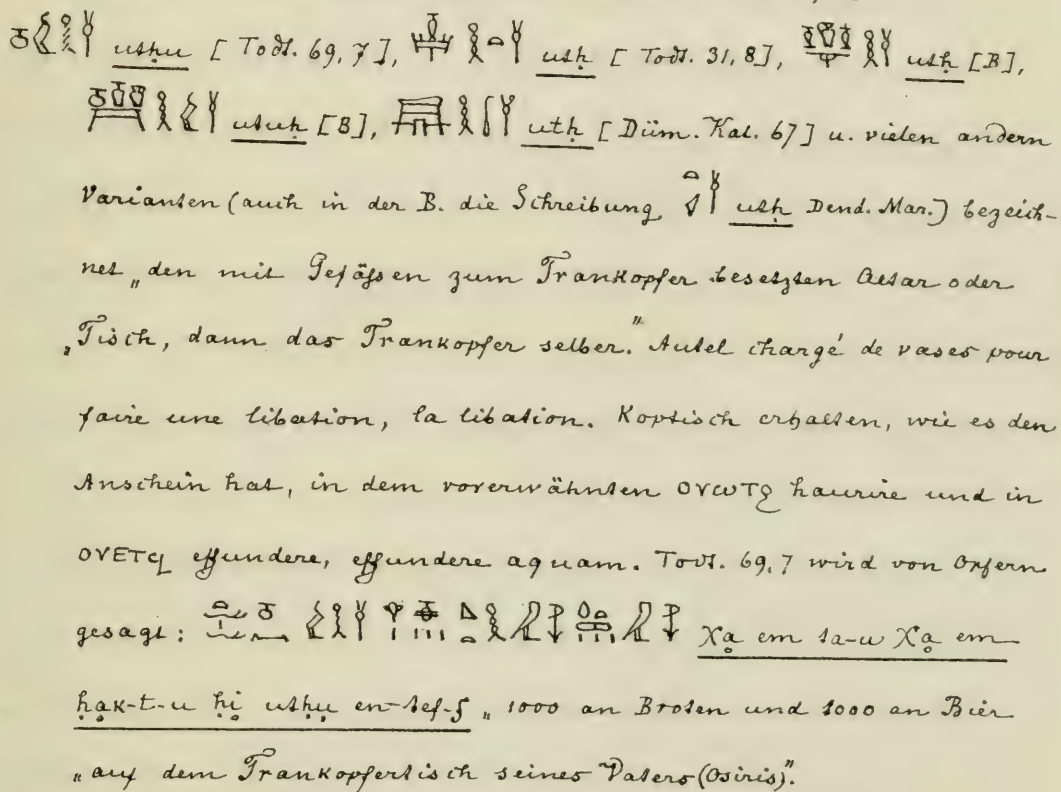 utḥu [Todt. 69, 7], utḥ [Todt. 31, 8], utḥ [B],
utuḥ [B], utḥ [Düm. Kal. 67] u. vielen andern
Varianten (auch in der B. die Schreibung utḥ Dend. Mar.) bezeich-
net „den mit Gefässen zum Trankopfer besetzten Altar oder
„Tisch, dann das Trankopfer selber.“ Autel chargé de vases pour
faire une libation, la libation. Koptisch erhalten, wie es den
Anschein hat, in dem vorerwähnten ⲟⲩⲱⲧϩ haurire und in
ⲟⲩⲉⲧϥ effundere, effundere aquam. Todt. 69,7 wird von Opfern
gesagt: χa em ta-u χa em
ḥaḳ-t-u ḥi utḥu en-tef-f „1000 an Broten und 1000 an Bier
„auf dem Trankopfertisch seines Vaters (Osiris)“.